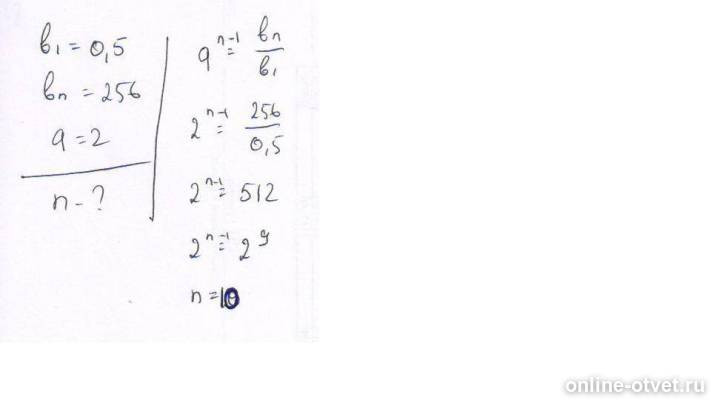 b₁ = 0,5
bₙ = 256
q = 2
n - ?
qⁿ⁻¹ = bₙ/b₁
2ⁿ⁻¹ = 256/0,5
2ⁿ⁻¹ = 512
2ⁿ⁻¹ = 2⁹
n = 10
online-otvet.ru